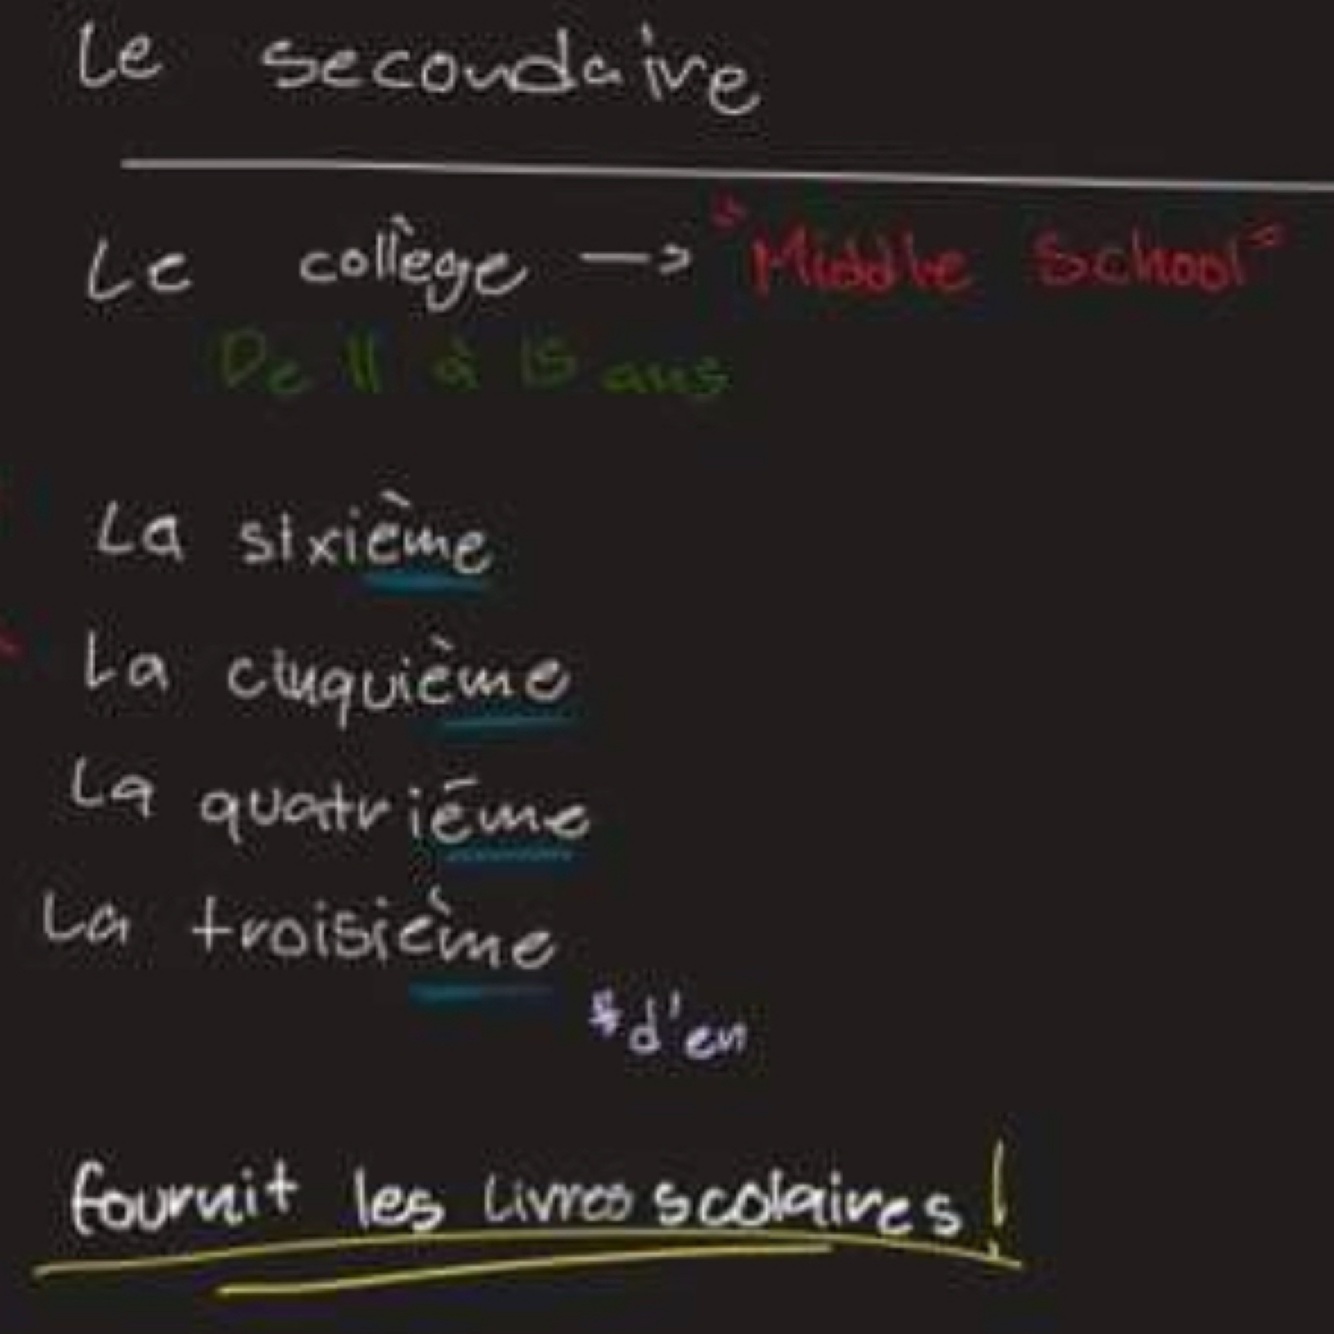 Le secondaire
Le collège → "Middle School"
De 11 à 15 ans
La sixième
La cinquième
La quatrième
La troisième
*d'en
fournit les livres scolaires!